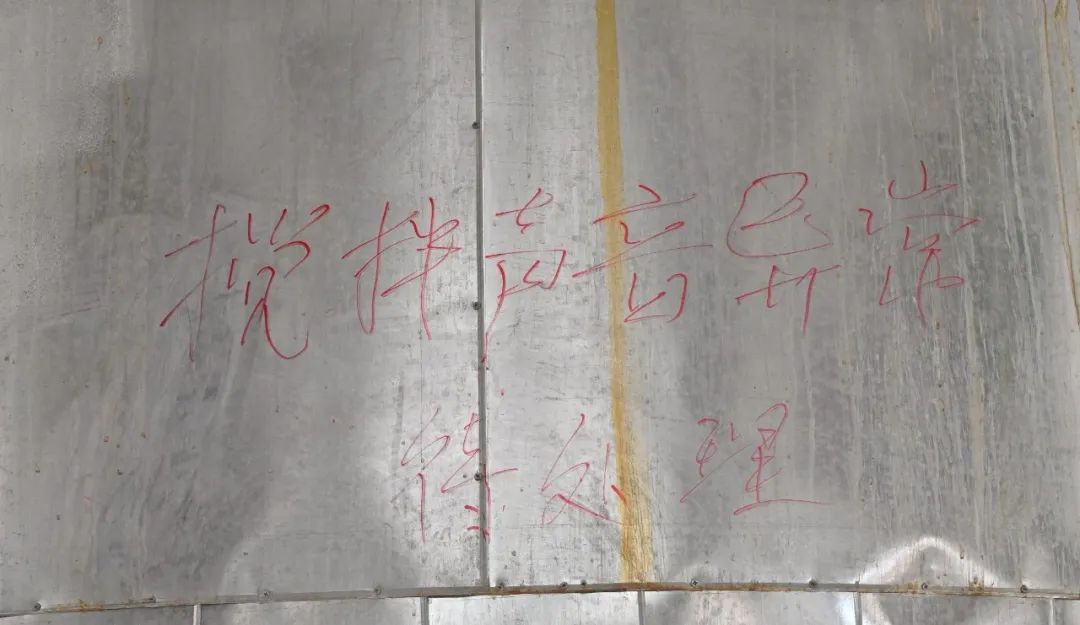 搅拌声音异常
待处理